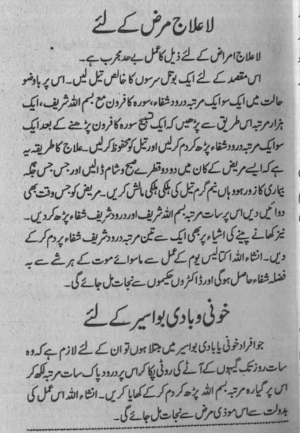 لاعلاج مرض کے لئے
لاعلاج امراض کے لئے ذیل کا عمل بے حد مجرب ہے۔
اس مقصد کے لئے ایک بوتل سرسوں کا خالص تیل لیں۔ اس پر باوضو
حالت میں ایک سو ایک مرتبہ درود شفاء، سورہ کافرون مع بسم اللہ شریف، ایک
ہزار مرتبہ اس طریق سے پڑھیں کہ ایک تسبیح سورہ کافرون پڑھنے کے بعد ایک
سو ایک مرتبہ درود شفاء پڑھ کر دم کر لیں اور تیل کو محفوظ کر لیں۔ علاج کا طریقہ یہ
ہے کہ ایسے مریض کے کان میں دو دو قطرے صبح و شام ڈالیں اور جس، جس جگہ
بیماری کا زور ہو وہاں نیم گرم تیل کی ہلکی ہلکی مالش کریں۔ مریض کو جس وقت بھی
دوائیں دیں اس پر سات مرتبہ بسم اللہ شریف اور درود شریف شفاء پڑھ کر دیں۔
نیز کھانے پینے کی اشیاء پر بھی ایک سے تین مرتبہ درود شریف شفاء پڑھ کر دم کر کے
دیں۔ انشاء اللہ اکتالیس یوم کے عمل سے ماسوائے موت کے ہر شے سے بہ
فضلہ شفاء حاصل ہو گی اور ڈاکٹروں حکیموں سے نجات مل جائے گی۔
خونی و بادی بواسیر کے لئے
جو افراد خونی یا بادی بواسیر میں مبتلا ہوں تو ان کے لئے لازم ہے کہ وہ
سات روز تک گیہوں کے آٹے کی روٹی پکا کر اس پر درود پاک سات مرتبہ لکھ کر
اس پر گیارہ مرتبہ بسم اللہ پڑھ کر دم کر کے کھایا کریں۔ انشاء اللہ اس عمل کی
بدولت سے اس موذی مرض سے نجات مل جائے گی۔